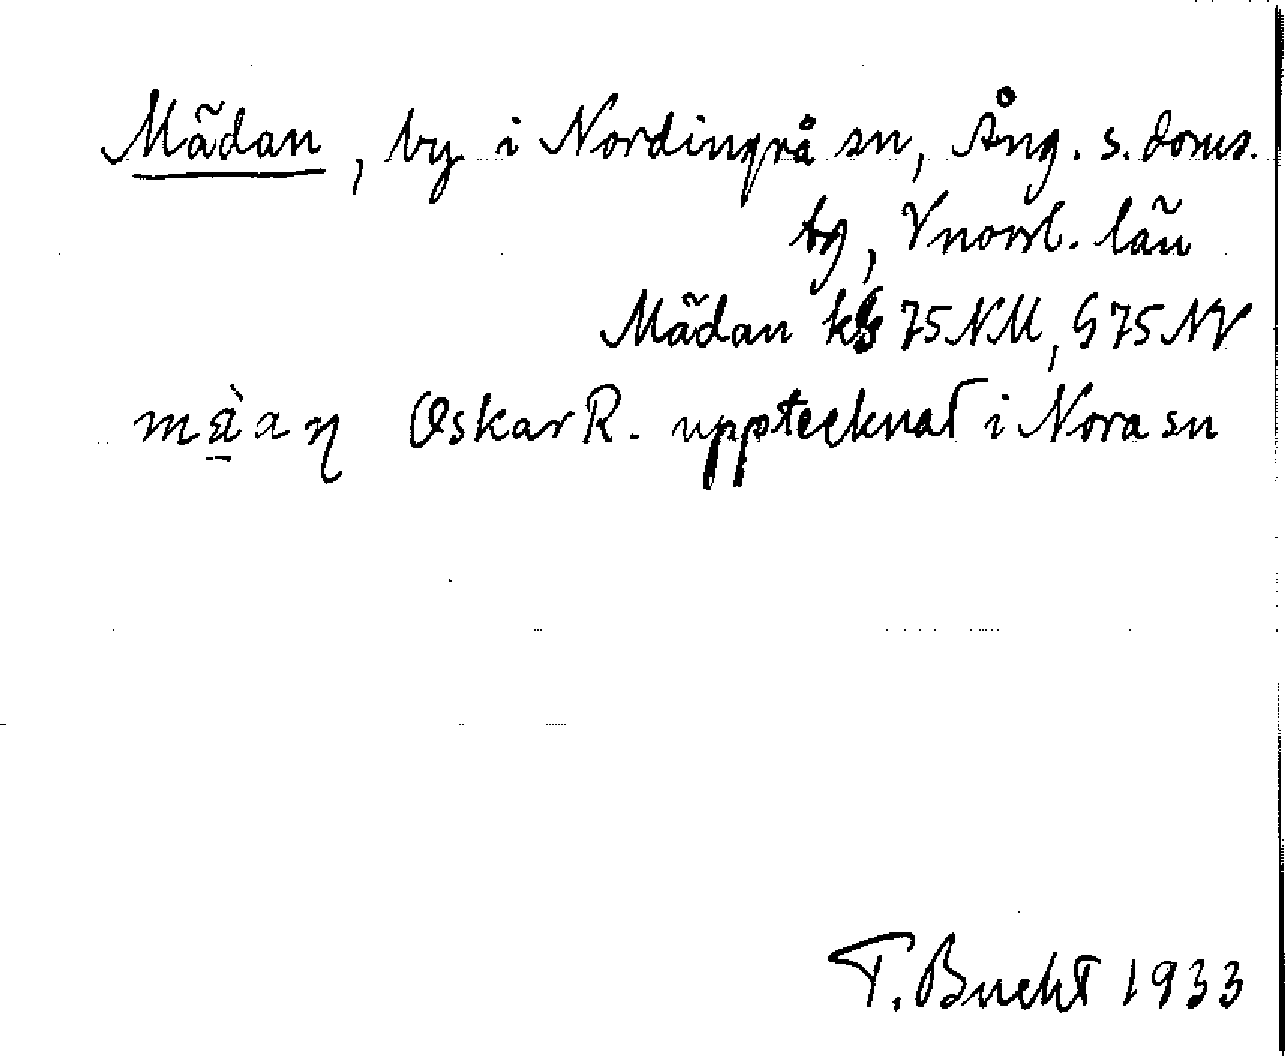 Mädan, by i Nordingrå sn, Ång. s. doms.
by, Vnorrl. län
Mädan kB 75 NM, G 75 NV
mä̀aṇ Oskar R. upptecknat i Nora sn
T. Bucht 1933